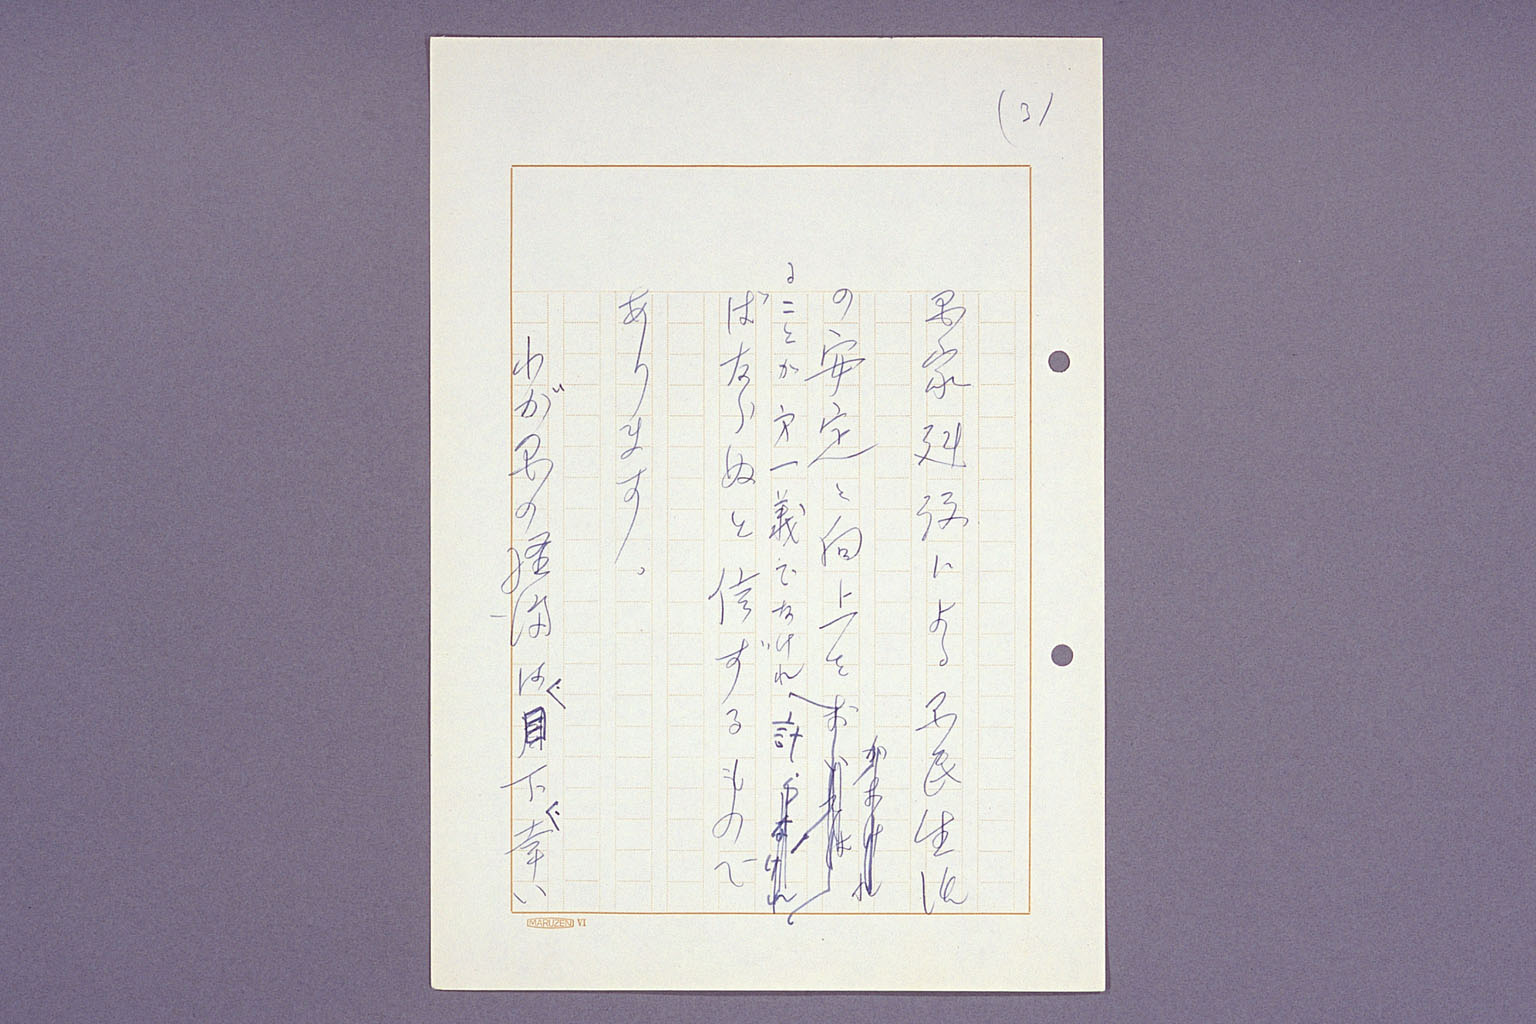 (3)
国家による国民生活
の安定と向上を
計
ることが第一義でなけれ
ばならぬと信ずるもので
あります。
わが国の経済は目下幸い
MARUZEN VI